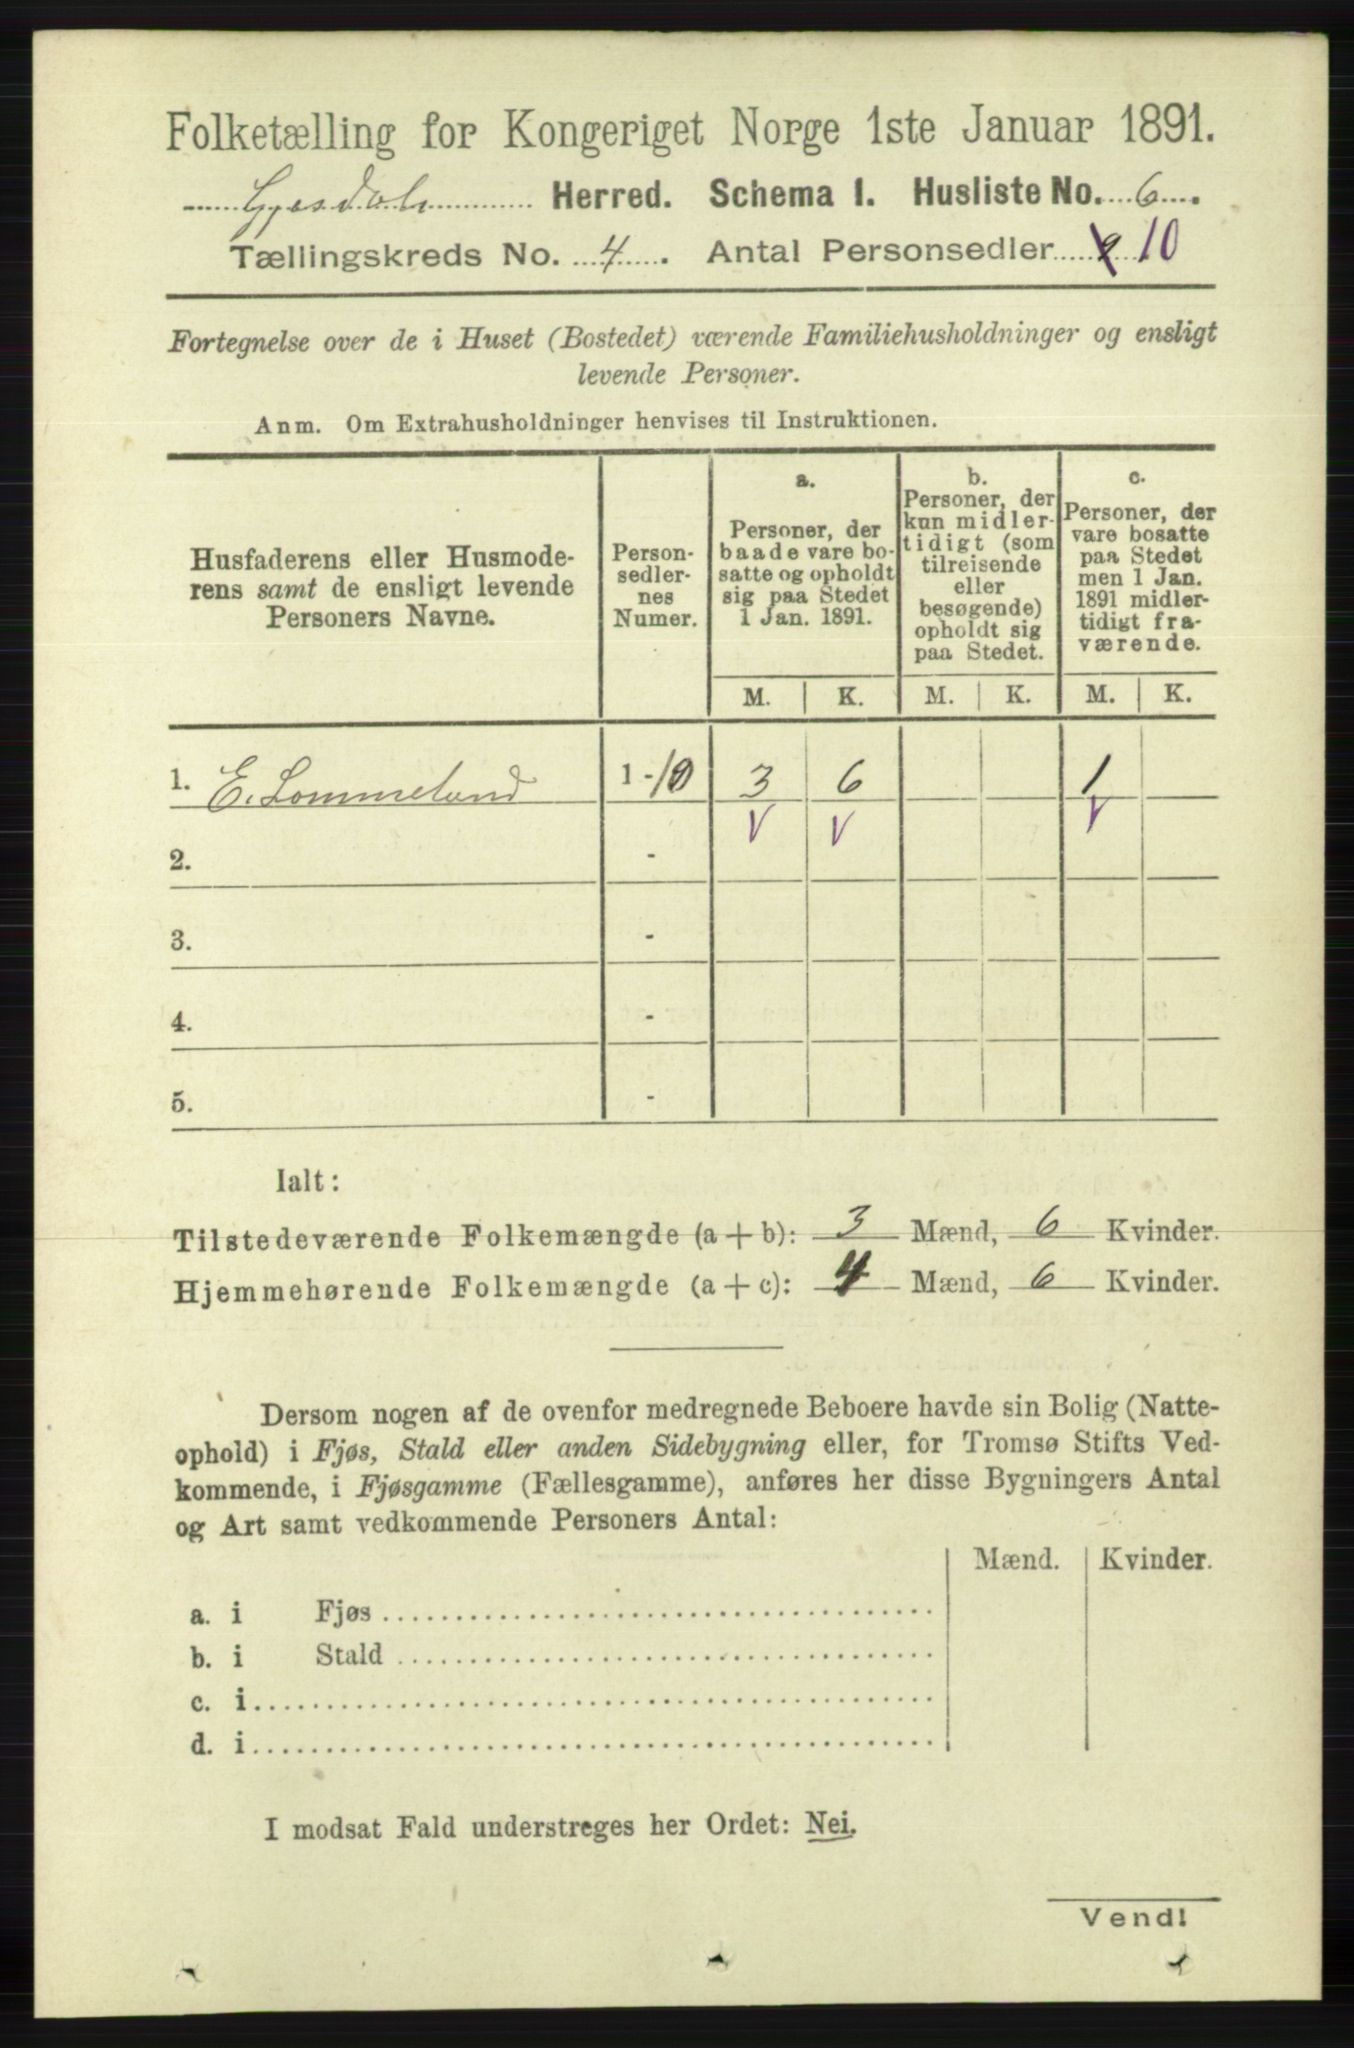 Folketælling for Kongeriget Norge 1ste Januar 1891.
Gjesdal Herred. Schema 1. Husliste No. 6.
Tællingskreds No. 4. Antal Personsedler 9 10
Fortegnelse over de i Huset (Bostedet) værende Familiehusholdninger og ensligt
levende Personer.
Anm. Om Extrahusholdninger henvises til Instruktionen.
Husfaderens eller Husmode-
rens samt de ensligt levende
Personers Navne.
Person-
sedler-
nes
Numer.
a.
Personer, der
baade vare bo-
satte og opholdt
sig paa Stedet
1 Jan. 1891.
b.
Personer, der
kun midler-
tidigt (som
tilreisende
eller
besøgende)
opholdt sig
paa Stedet.
c.
Personer, der
vare bosatte
paa Stedet
men 1 Jan.
1891 midler-
tidigt fra-
værende.
M. K. M. K. M. K.
1. E. Lommeland 1 - 10 3 6 1
V V V
2. -
3. -
4. -
5. -
Ialt:
Tilstedeværende Folkemængde (a + b): 3 Mænd, 6 Kvinder.
Hjemmehørende Folkemængde (a + c): 4 Mænd, 6 Kvinder.
Dersom nogen af de ovenfor medregnede Beboere havde sin Bolig (Natte-
ophold) i Fjøs, Stald eller anden Sidebygning eller, for Tromsø Stifts Ved-
kommende, i Fjøsgamme (Fællesgamme), anføres her disse Bygningers Antal
og Art samt vedkommende Personers Antal:
Mænd. Kvinder.
a. i Fjøs
b. i Stald
c. i
d. i
I modsat Fald understreges her Ordet: Nei.
Vend!